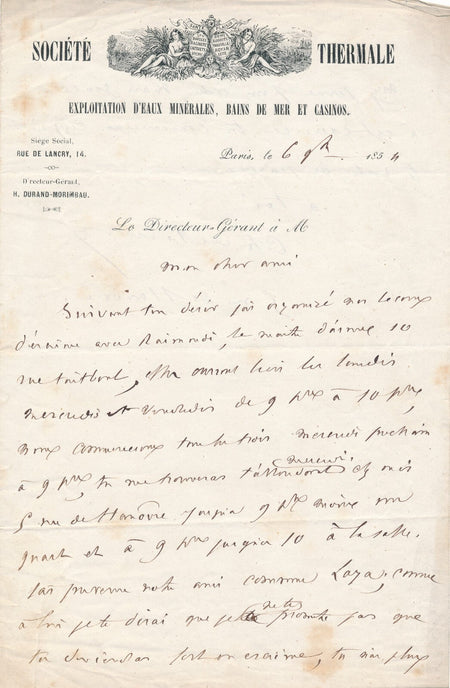 SOCIÉTÉ THERMALE
EXPLOITATION D'EAUX MINÉRALES, BAINS DE MER ET CASINOS.
Siége Social,
RUE DE LANCRY, 14.
Directeur-Gérant,
H. DURAND-MORIMBAU.
Paris, le 6 9bre 1854
Le Directeur-Gérant à M
Mon cher ami
Suivant ton désir j'ai organisé nos leçons
d'escrime avec Raimondi, le maitre d'armes 10
rue Taitbout, elles auront lieu les lundis
mercredis et vendredis de 9 hres à 10 hres,
nous commencerons tous les trois mercredi prochain
à 9 hres, tu me trouveras mercredi chez moi
5 rue de Hanôvre jusqu'à 9 hres moins un
quart et à 9 hres jusqu'à 10 à la salle.
J'ai prévenu notre ami commun Laya; comme
à lui je te dirai que je ne te promets pas que
tu deviendras fort en escrime, tu n'as plus